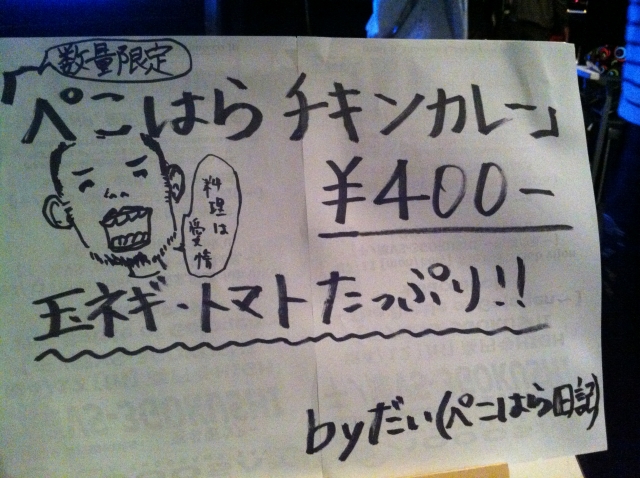 数量限定
「ぺこはらチキンカレー」
¥400-
料理は
愛情
玉ネギ・トマトたっぷり!!
byだい(ぺこはら日記)